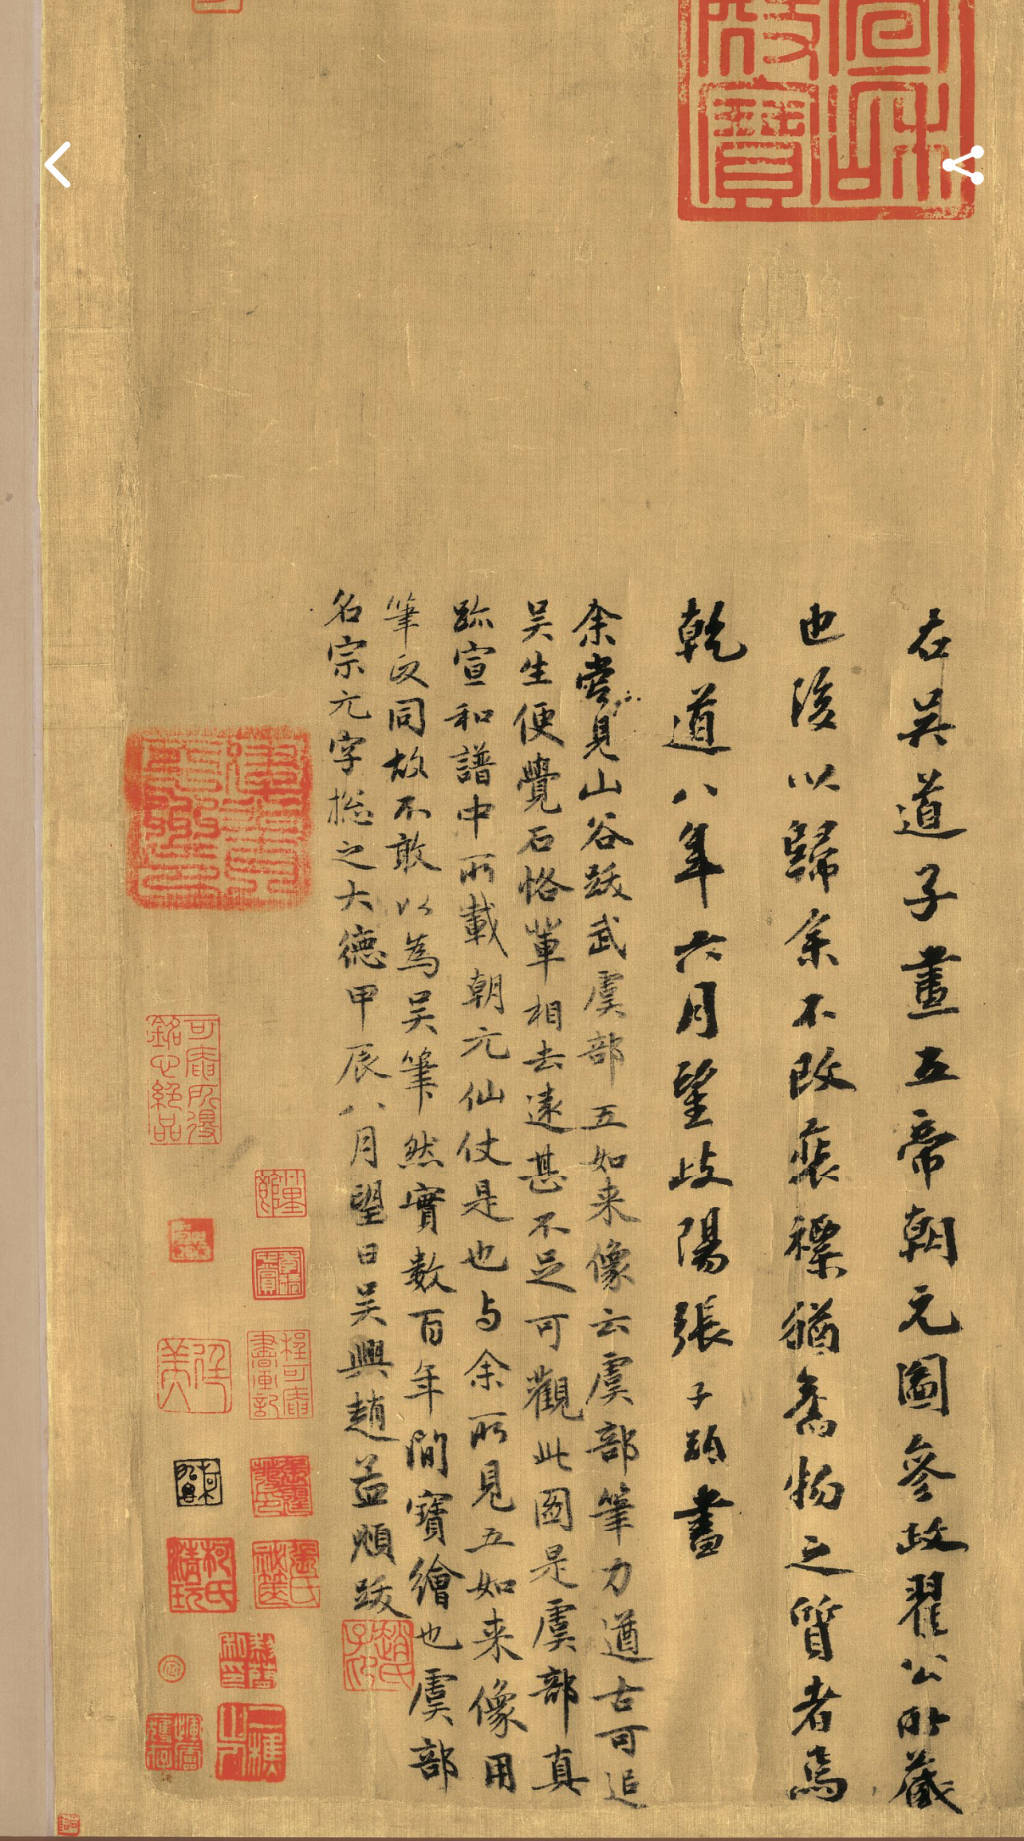 右吳道子畫五帝朝元圖參政翟公所藏
也後以歸余不改裝褾猶舊物之質者焉
乾道八年六月望歧陽張子𩓐畫
余嘗見山谷跋武虞部五如来像云虞部筆力遒古可追
吳生便覺石恪軰相去遠甚不足可觀此圖是虞部真
跡宣和譜中所載朝元仙仗是也与余所見五如来像用
筆又同故不敢以為吳筆然實數百年間寶繪也虞部
名宗元字揔之大德甲辰八月望日吳興趙孟頫跋
趙氏子印
可庵所得銘心絕品
程可庵書畫記
柯氏清玩